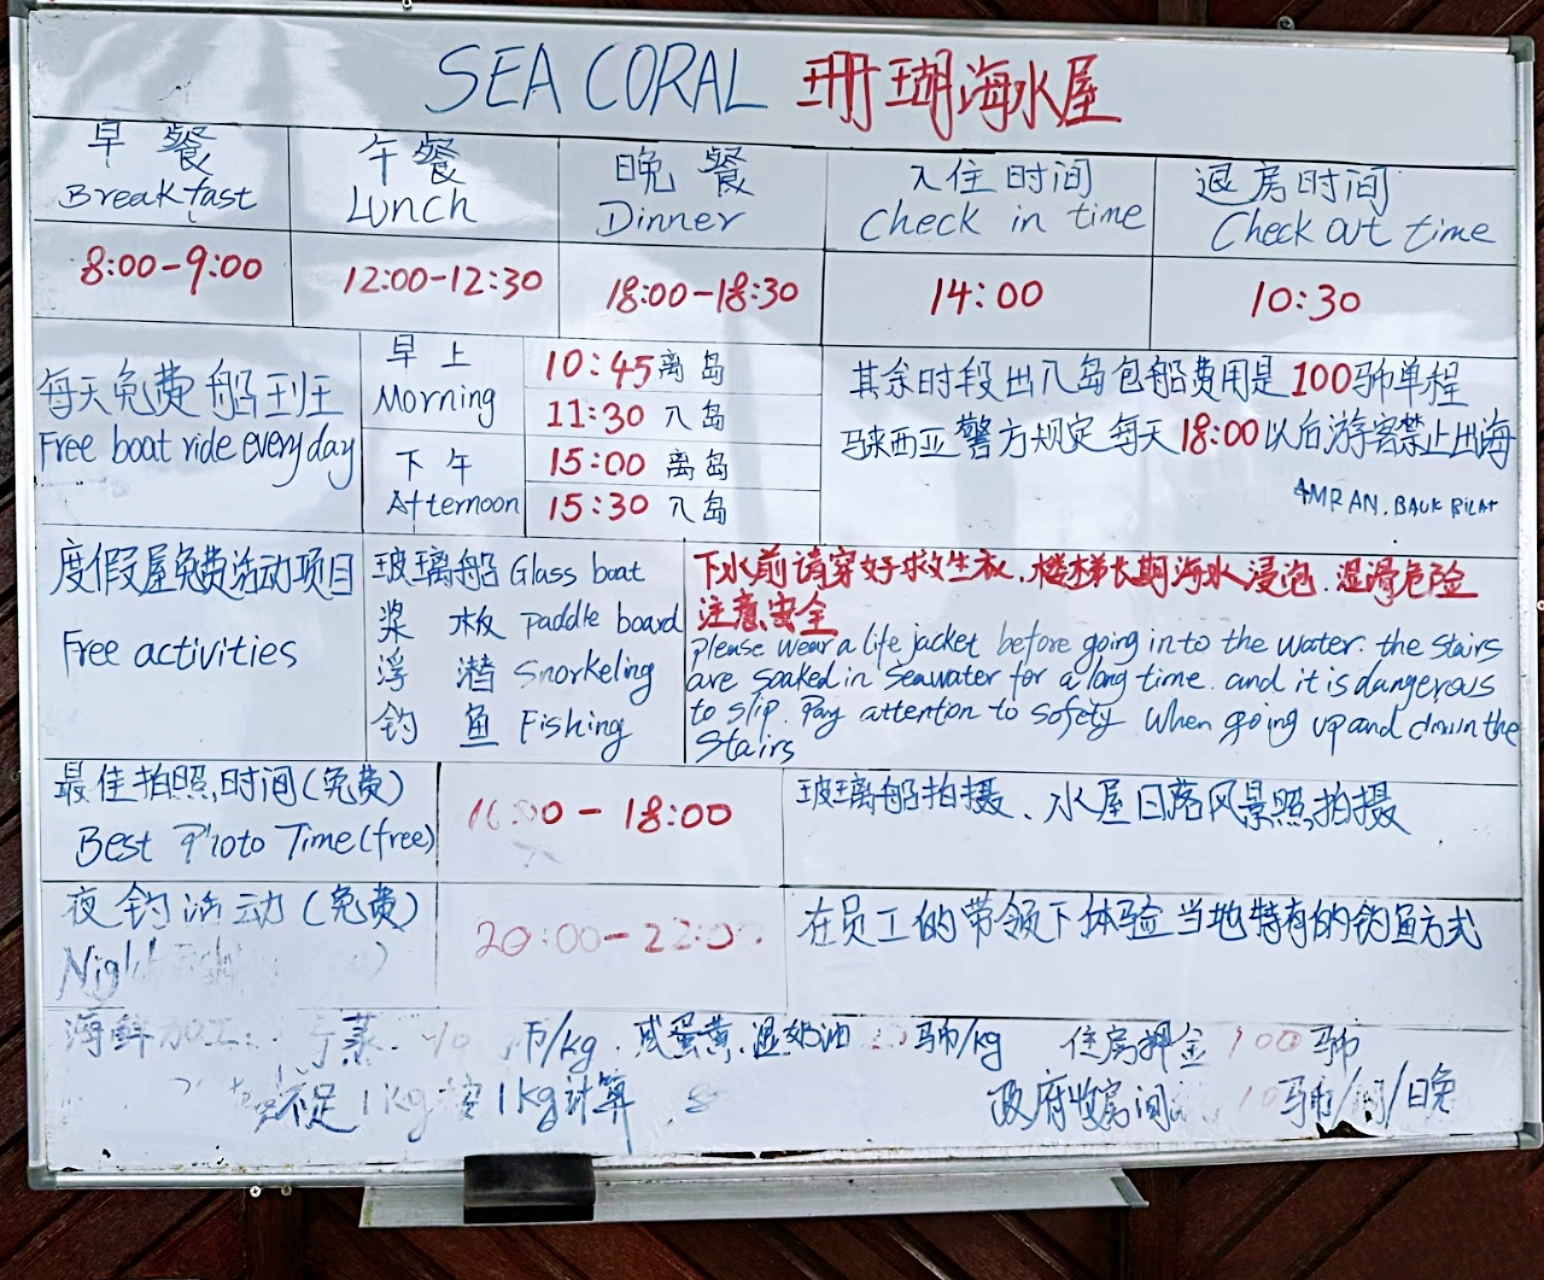 SEA CORAL 珊瑚海水屋
早餐
Breakfast
午餐
Lunch
晚餐
Dinner
入住时间
Check in time
退房时间
Check out time
8:00-9:00
12:00-12:30
18:00-18:30
14:00
10:30
每天免费船班
Free boat ride every day
早上
Morning
10:45 离岛
11:30 入岛
下午
Afternoon
15:00 离岛
15:30 入岛
其余时段出入岛包船费用是100马币单程
马来西亚警方规定每天18:00以后游客禁止出海
AMRAN. BAUK
度假屋免费活动项目
Free activities
玻璃船 Glass boat
桨板 paddle board
浮潜 Snorkeling
钓鱼 Fishing
下水前请穿好救生衣.楼梯长期海水浸泡.湿滑危险
注意安全
please wear a life jacket before going into the water. the stairs
are soaked in seawater for a long time. and it is dangerous
to slip. Pay attention to safety when going up and down the
stairs
最佳拍照时间(免费)
Best Photo Time(free)
- 18:00
玻璃船拍摄、水屋日落风景照拍摄
夜钓活动(免费)
20:00-22:00
在员工的带领下体验当地特有的钓鱼方式
海鲜加工: 蒸. 币/kg. 咸蛋黄.湿奶油 马币/kg
住房押金100马币
不足1kg按1kg计算
政府收房间 10马币/间/日晚